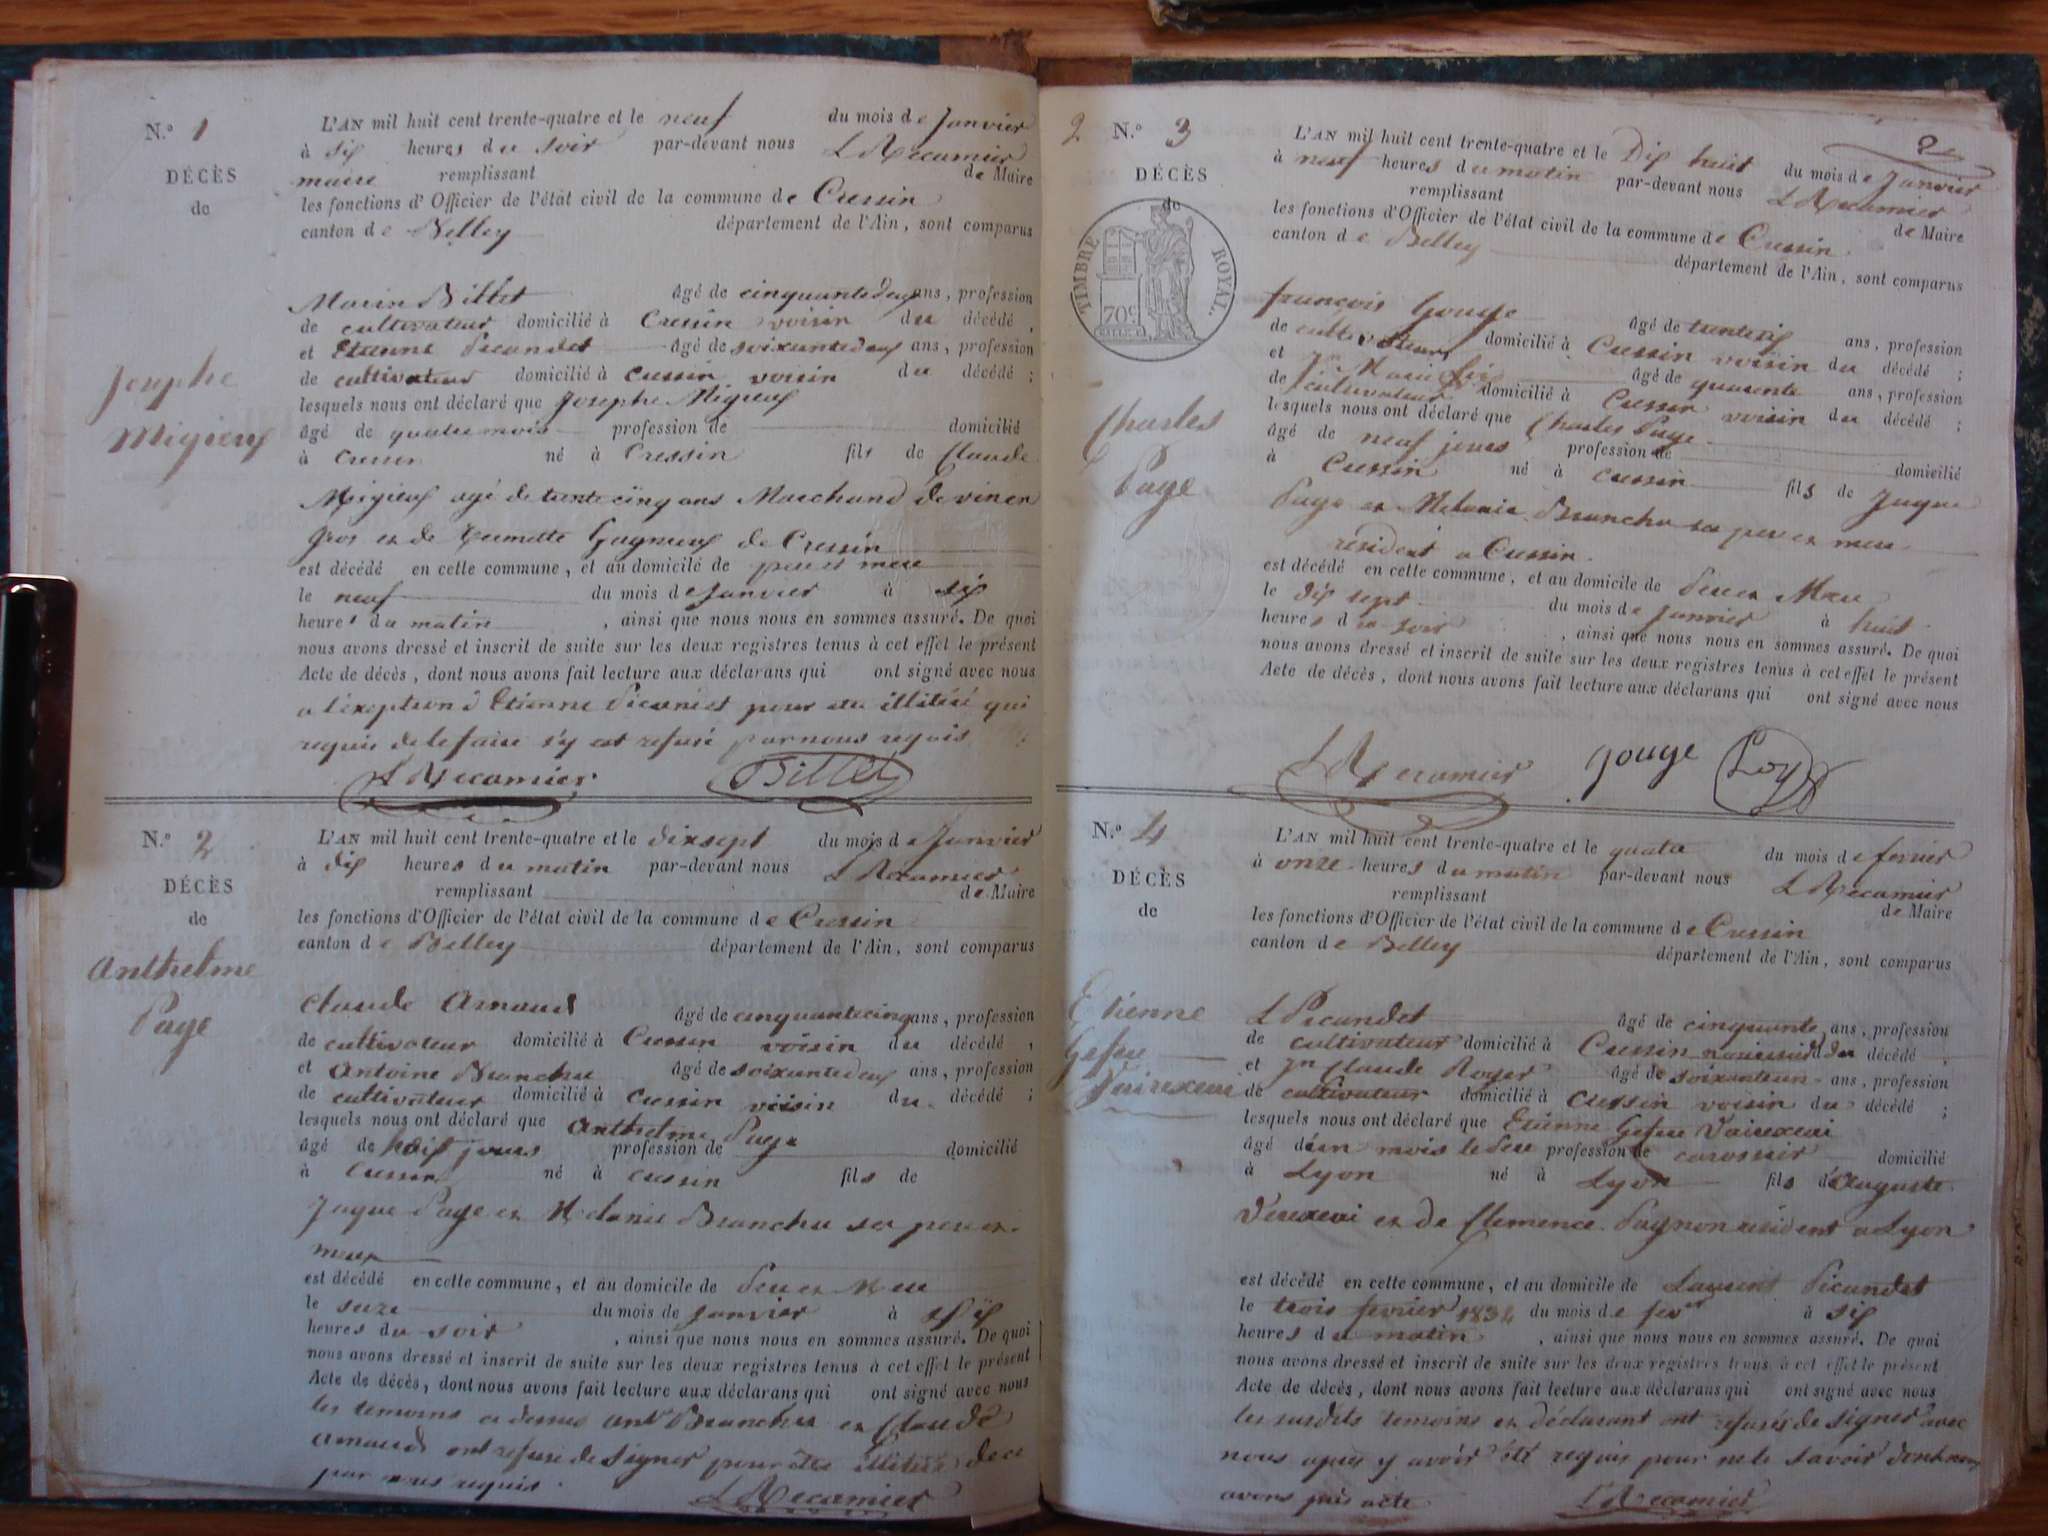 N.o 1
DÉCÈS
de
Josephe
Migieux
L'AN mil huit cent trente-quatre et le neuf du mois de Janvier
à six heures du soir par-devant nous L Recamier
maire remplissant de Maire
les fonctions d'Officier de l'état civil de la commune de Cressin
canton de Belley département de l'Ain, sont comparus
Marin Billet âgé de cinquante deux ans, profession
de cultivateur domicilié à Cressin voisin du décédé,
et Etienne Picandet âgé de soixante deux ans, profession
de cultivateur domicilié à Cressin voisin du décédé;
lesquels nous ont déclaré que Josephe Migieux
âgé de quatre mois profession de domicilié
à Cressin né à Cressin fils de Claude
Migieux agé de trente cinq ans Marchand de vin en
gros et de Gagnieux de Cressin
est décédé en cette commune, et au domicile de pere et mere
le neuf du mois de Janvier à six
heures du matin, ainsi que nous nous en sommes assuré. De quoi
nous avons dressé et inscrit de suite sur les deux registres tenus à cet effet le présent
Acte de décès, dont nous avons fait lecture aux déclarans qui ont signé avec nous
a l'exeption d Etienne Picandet pour illitéré qui
requis de le faire s'y est refusé par nous requis
L Recamier Billet
N.o 2
DÉCÈS
de
Anthelme
Page
L'AN mil huit cent trente-quatre et le dix sept du mois de Janvier
à dix heures du matin par-devant nous L Recamier
remplissant de Maire
les fonctions d'Officier de l'état civil de la commune de Cressin
canton de Belley département de l'Ain, sont comparus
Claude Arnaud âgé de cinquante cinq ans, profession
de cultivateur domicilié à Cressin voisin du décédé,
et Antoine Branchu âgé de soixante deux ans, profession
de cultivateur domicilié à Cressin voisin du décédé;
lesquels nous ont déclaré que Anthelme Page
âgé de huit jours profession de domicilié
à Cressin né à Cressin fils de
Jaque Page et Melanie Branchu ses pere et
mere
est décédé en cette commune, et au domicile de Pere et Mere
le seize du mois de Janvier à six
heures du soir, ainsi que nous nous en sommes assuré. De quoi
nous avons dressé et inscrit de suite sur les deux registres tenus à cet effet le présent
Acte de décès, dont nous avons fait lecture aux déclarans qui ont signé avec nous
les temoins ci dessus Ant Branchu et Claude
Arnaud ont refusé de signer pour être illitéré de ce
par nous requis.
L Recamier
2
2
N.o 3
DÉCÈS
de
TIMBRE ROYAL.
70c
Charles
Page
L'AN mil huit cent trente-quatre et le Dix huit du mois de Janvier
à neuf heures du matin par-devant nous L Recamier
remplissant de Maire
les fonctions d'Officier de l'état civil de la commune de Cressin
canton de Belley département de l'Ain, sont comparus
françois Gouge âgé de trente six ans, profession
de cultivateur domicilié à Cressin voisin du décédé;
et Jn Marie âgé de quarente ans, profession
de cultivateur domicilié à Cressin voisin du décédé;
lesquels nous ont déclaré que Charles Page
âgé de neuf jours profession de domicilié
à Cressin né à Cressin fils de Jaque
Page et Melanie Branchu ses pere et mere
résident a Cressin.
est décédé en cette commune, et au domicile de Pere et Mere
le dix sept du mois de Janvier à huit
heures du soir, ainsi que nous nous en sommes assuré. De quoi
nous avons dressé et inscrit de suite sur les deux registres tenus à cet effet le présent
Acte de décès, dont nous avons fait lecture aux déclarans qui ont signé avec nous
L Recamier gouge Loy
N.o 4
DÉCÈS
de
Etienne
Gefser
Vairexeui
L'AN mil huit cent trente-quatre et le quatre du mois de fevrier
à onze heures du matin par-devant nous L Recamier
remplissant de Maire
les fonctions d'Officier de l'état civil de la commune de Cressin
canton de Belley département de l'Ain, sont comparus
L Picandet âgé de cinquante ans, profession
de cultivateur domicilié à Cressin du décédé,
et Jn Claude Roger âgé de ans, profession
de cultivateur domicilié à Cressin voisin du décédé;
lesquels nous ont déclaré que Etienne Vairexeui
âgé d'un mois profession de domicilié
à Lyon né à Lyon fils d'Auguste
et de Clemence Pagnon résident a Lyon
est décédé en cette commune, et au domicile de Laurent Picandet
le trois fevrier 1834 du mois de fevr à six
heures du matin, ainsi que nous nous en sommes assuré. De quoi
nous avons dressé et inscrit de suite sur les deux registres tenus à cet effet le présent
Acte de décès, dont nous avons fait lecture aux déclarans qui ont signé avec nous
les susdits temoins et déclarant ont refusés de signer avec
nous apres y avoir été requis pour ne le savoir dont nous
avons pris acte
L Recamier